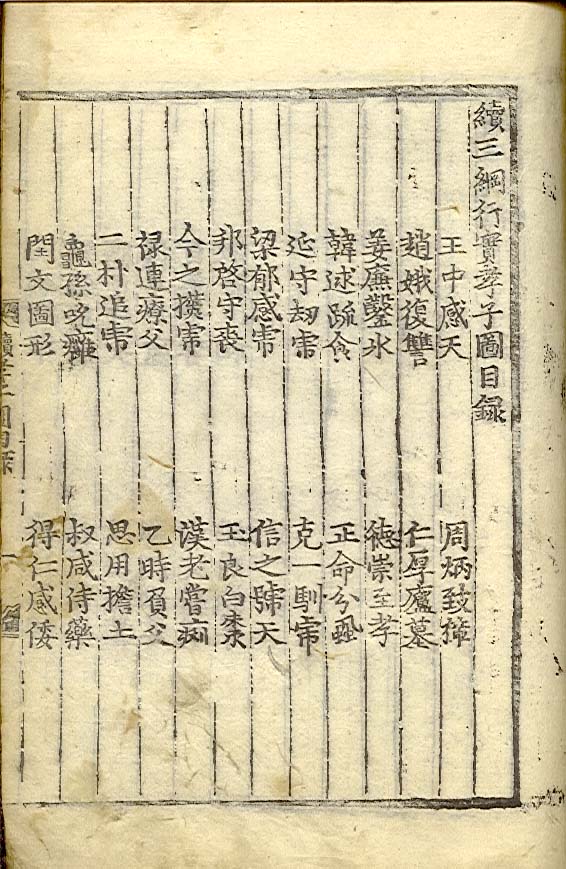 續三綱行實孝子圖目録
王中感天　周炳致獐
趙娥復讐　仁厚廬墓
姜廉鑿氷　德崇至孝
韓述疏食　正命
延守劫虎　克一馴虎
梁郁感虎　信之號天
邦啓守喪　玉良白棗
今之撲虎　漢老嘗痢
禄連療父　乙時負父
二朴追虎　思用擔土
龜孫吮癰　叔咸侍藥
閏文圖形　得仁感倭